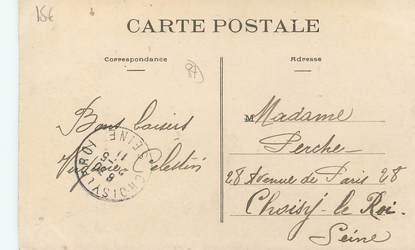 15€
CARTE POSTALE
Correspondance
Adresse
Bons baisers
Célestin
Madame
Perche
28 Avenue de Paris 28
Choisy-le Roi
Seine
CHOISY-LE-ROI
SEINE